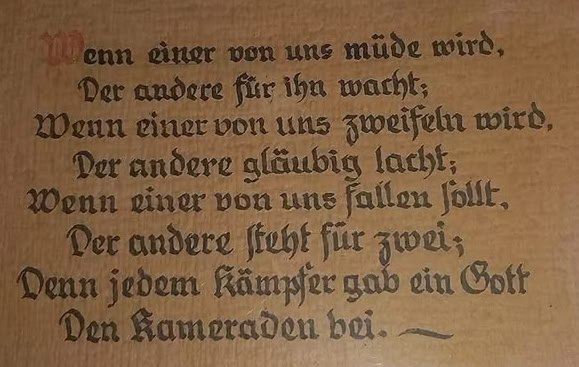 Wenn einer von uns müde wird,
Der andere für ihn wacht;
Wenn einer von uns zweifeln wird,
Der andere gläubig lacht;
Wenn einer von uns fallen sollt,
Der andere steht für zwei;
Denn jedem Kämpfer gab ein Gott
Den Kameraden bei.